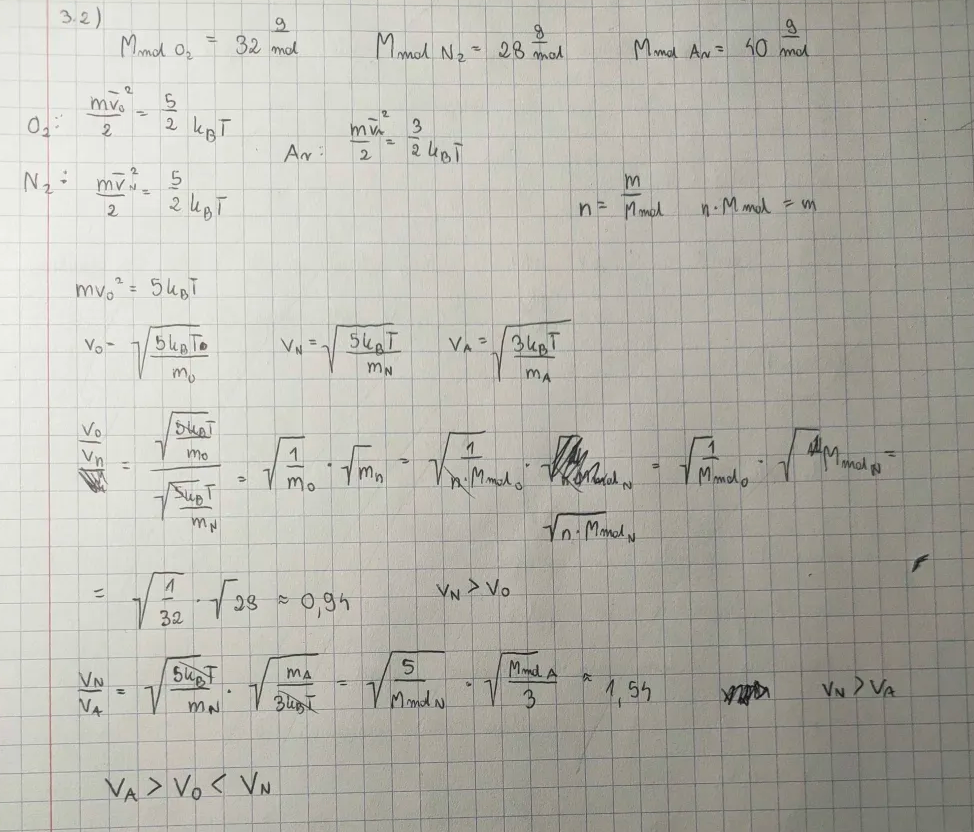 3.2)
M_mol O₂ = 32 g/mol M_mol N₂ = 28 g/mol M_mol Ar = 40 g/mol
O₂: mv̄₀²/2 = 5/2 k_BT
Ar: mv̄_A²/2 = 3/2 k_BT
N₂: mv̄_N²/2 = 5/2 k_BT
n = m/M_mol n·M_mol = m
mv₀² = 5k_BT
v₀ = √(5k_BT/m₀) v_N = √(5k_BT/m_N) v_A = √(3k_BT/m_A)
v₀/v_n = √(5k_BT/m₀)/√(5k_BT/m_N) = √(1/m₀) · √m_n = √(1/(n·M_mol₀)) · √(n·M_mol_N) = √(1/M_mol₀) · √M_mol_N =
= √(1/32) · √28 ≈ 0,94 v_N > v₀
v_N/v_A = √(5k_BT/m_N) · √(m_A/3k_BT) = √(5/M_mol_N) · √(M_mol_A/3) ≈ 1,54 v_N > v_A
v_A > v₀ < v_N